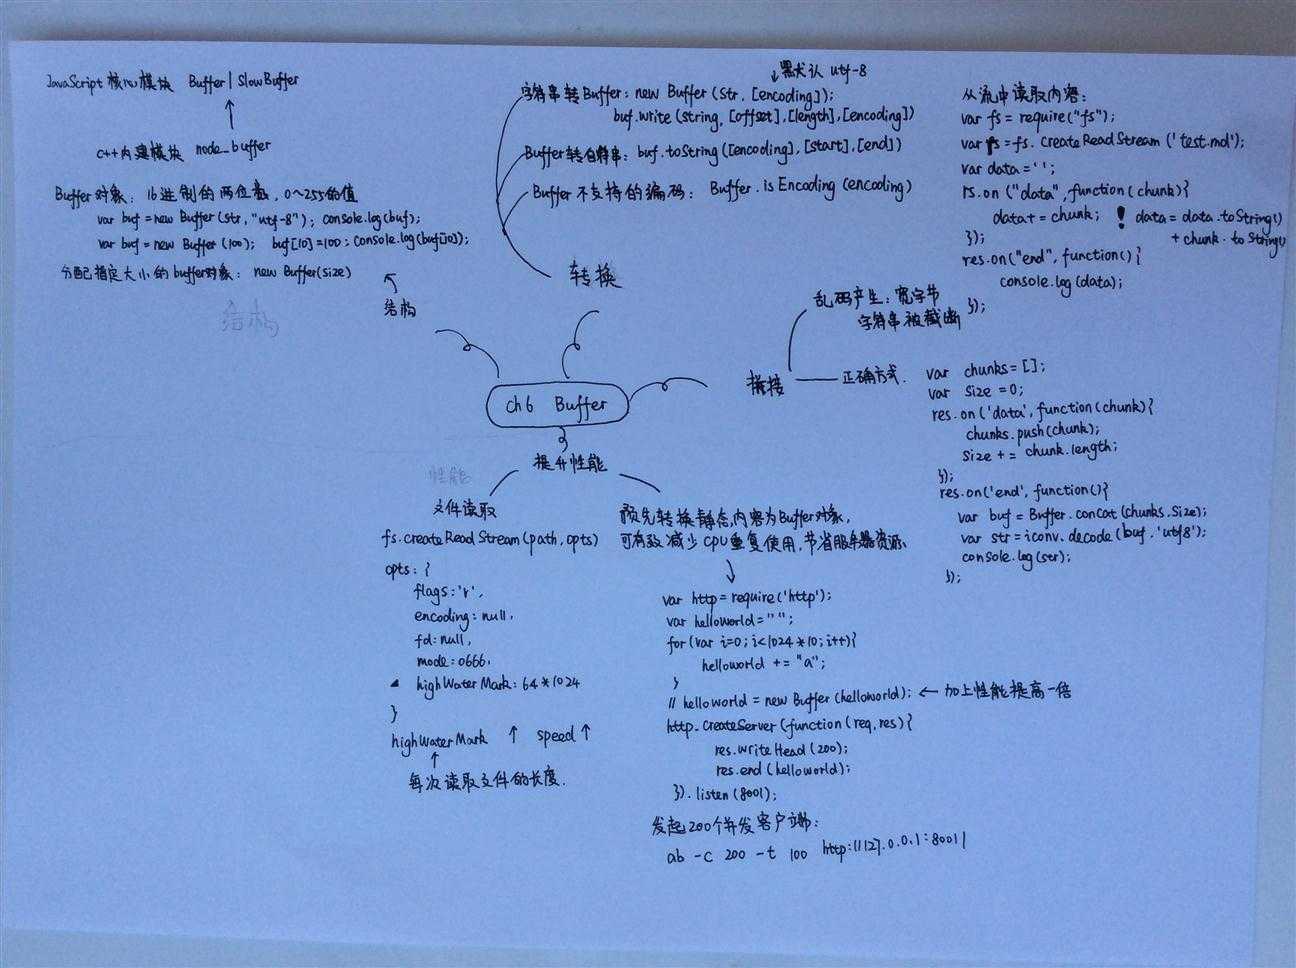 JavaScript 核心模块 Buffer | SlowBuffer
c++内建模块 node_buffer
Buffer对象：16进制的两位数，0~255的值
var buf = new Buffer (str, "utf-8"); console.log(buf);
var buf = new Buffer (100); buf[10]=100; console.log(buf[10]);
分配指定大小的buffer对象：new Buffer(size)
结构
结构
默认 utf-8
字符串转Buffer: new Buffer (str, [encoding]);
buf.write (string, [offset],[length],[encoding])
Buffer转字符串: buf.toString([encoding],[start],[end])
Buffer 不支持的编码: Buffer.isEncoding (encoding)
转换
从流中读取内容:
var fs = require("fs");
var rs = fs.createReadStream ('test.md');
var data = '';
rs.on ("data", function(chunk){
data += chunk; ! data = data.toString()
+ chunk.toString()
});
res.on("end", function(){
console.log (data);
});
乱码产生: 宽字节
字符串被截断
拼接
正确方式.
var chunks = [];
var size = 0;
res.on ('data', function(chunk){
chunks.push(chunk);
size += chunk.length;
});
res.on('end', function(){
var buf = Buffer.concat (chunks, size);
var str = iconv.decode (buf, 'utf8');
console.log (str);
});
ch6 Buffer
提升性能
性能
文件读取
fs.createReadStream (path, opts)
opts: {
flags: 'r',
encoding: null,
fd: null,
mode: 0666,
highWaterMark: 64*1024
}
highWaterMark ↑ speed ↑
↑
每次读取文件的长度.
预先转换静态内容为Buffer对象,
可有效减少CPU重复使用, 节省服务器资源.
var http = require('http');
var helloworld = "";
for (var i=0; i<1024*10; i++){
helloworld += "a";
}
// helloworld = new Buffer (helloworld); ← 加上性能提高一倍
http.createServer (function (req, res) {
res.writeHead (200);
res.end (helloworld);
}).listen (8001);
发起200个并发客户端:
ab -c 200 -t 100 http://127.0.0.1:8001/